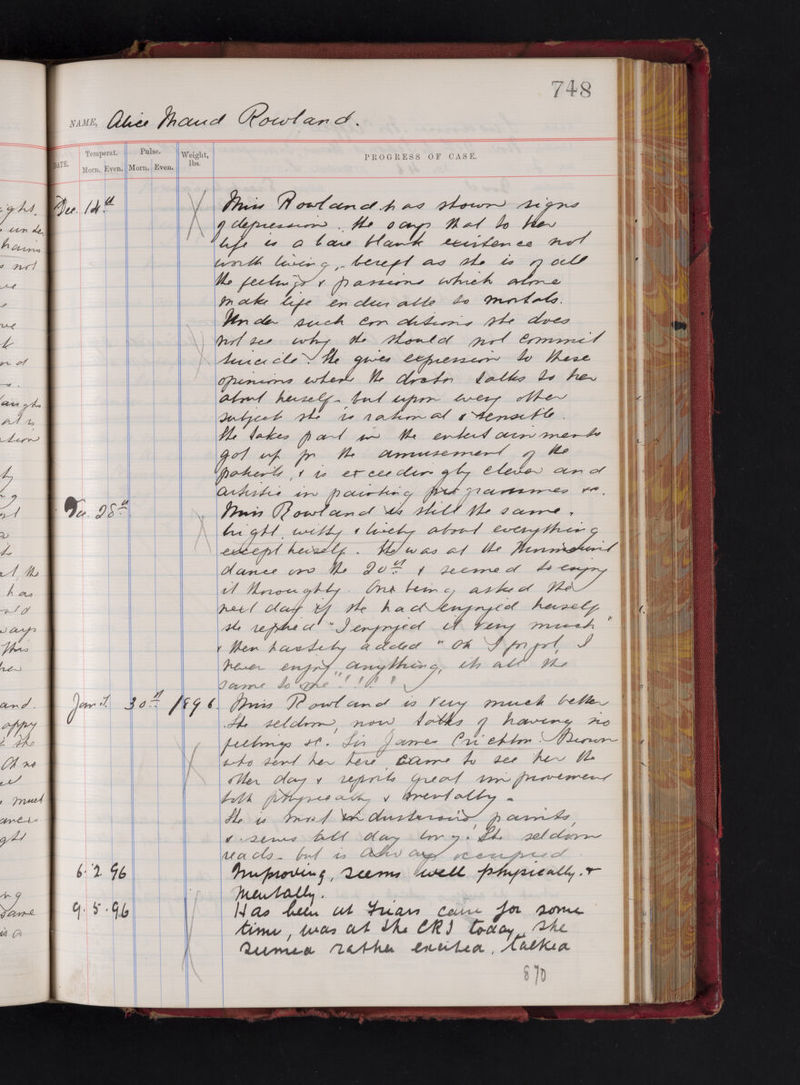 748
NAME, Alice Maud Rowland.
DATE. Temperat. Morn. Even. Pulse. Morn. Even. Weight, lbs. PROGRESS OF CASE.
Dec. 14th Miss Rowland has shown signs
of depression. She says that to her
life is a bare blank existence not
worth living, bereft as she is of all
the feelings & passions which alone
make life endurable to mortals.
Under such conditions she does
not see why she should not commit
suicide. She gives expression to these
opinions when the doctor talks to her
about herself - but upon every other
subject she is rational & sensible.
She takes part in the entertainments
got up for the amusement of the
patients, & is exceedingly clever and
artistic in painting programmes &c.
Dec. 28th Miss Rowland is still the same.
bright, witty & lively about everything
except herself. She was at the
dance on the 20th & seemed to enjoy
it thoroughly. On being asked the
next day if she had enjoyed herself
she replied "I enjoyed it very much"
& then hastily added "Oh I forgot, I
never enjoy anything, its all the
same to me"!!!!
Jany. 30th 1896 Miss Rowland is very much better
She seldom now talks of having no
feelings &c. Sir James Crichton Browne
who sent her here came to see her the
other day & reports great improvement
both physically & mentally.
She is most industrious paints,
& sews all day long. She seldom
reads - but is always occupied.
6.2.96 Improving, seems well physically. &
mentally.
9.5.96 Has been at Friars carse for some
time, was at the CRI today, she
seemed rather excited, talked
870